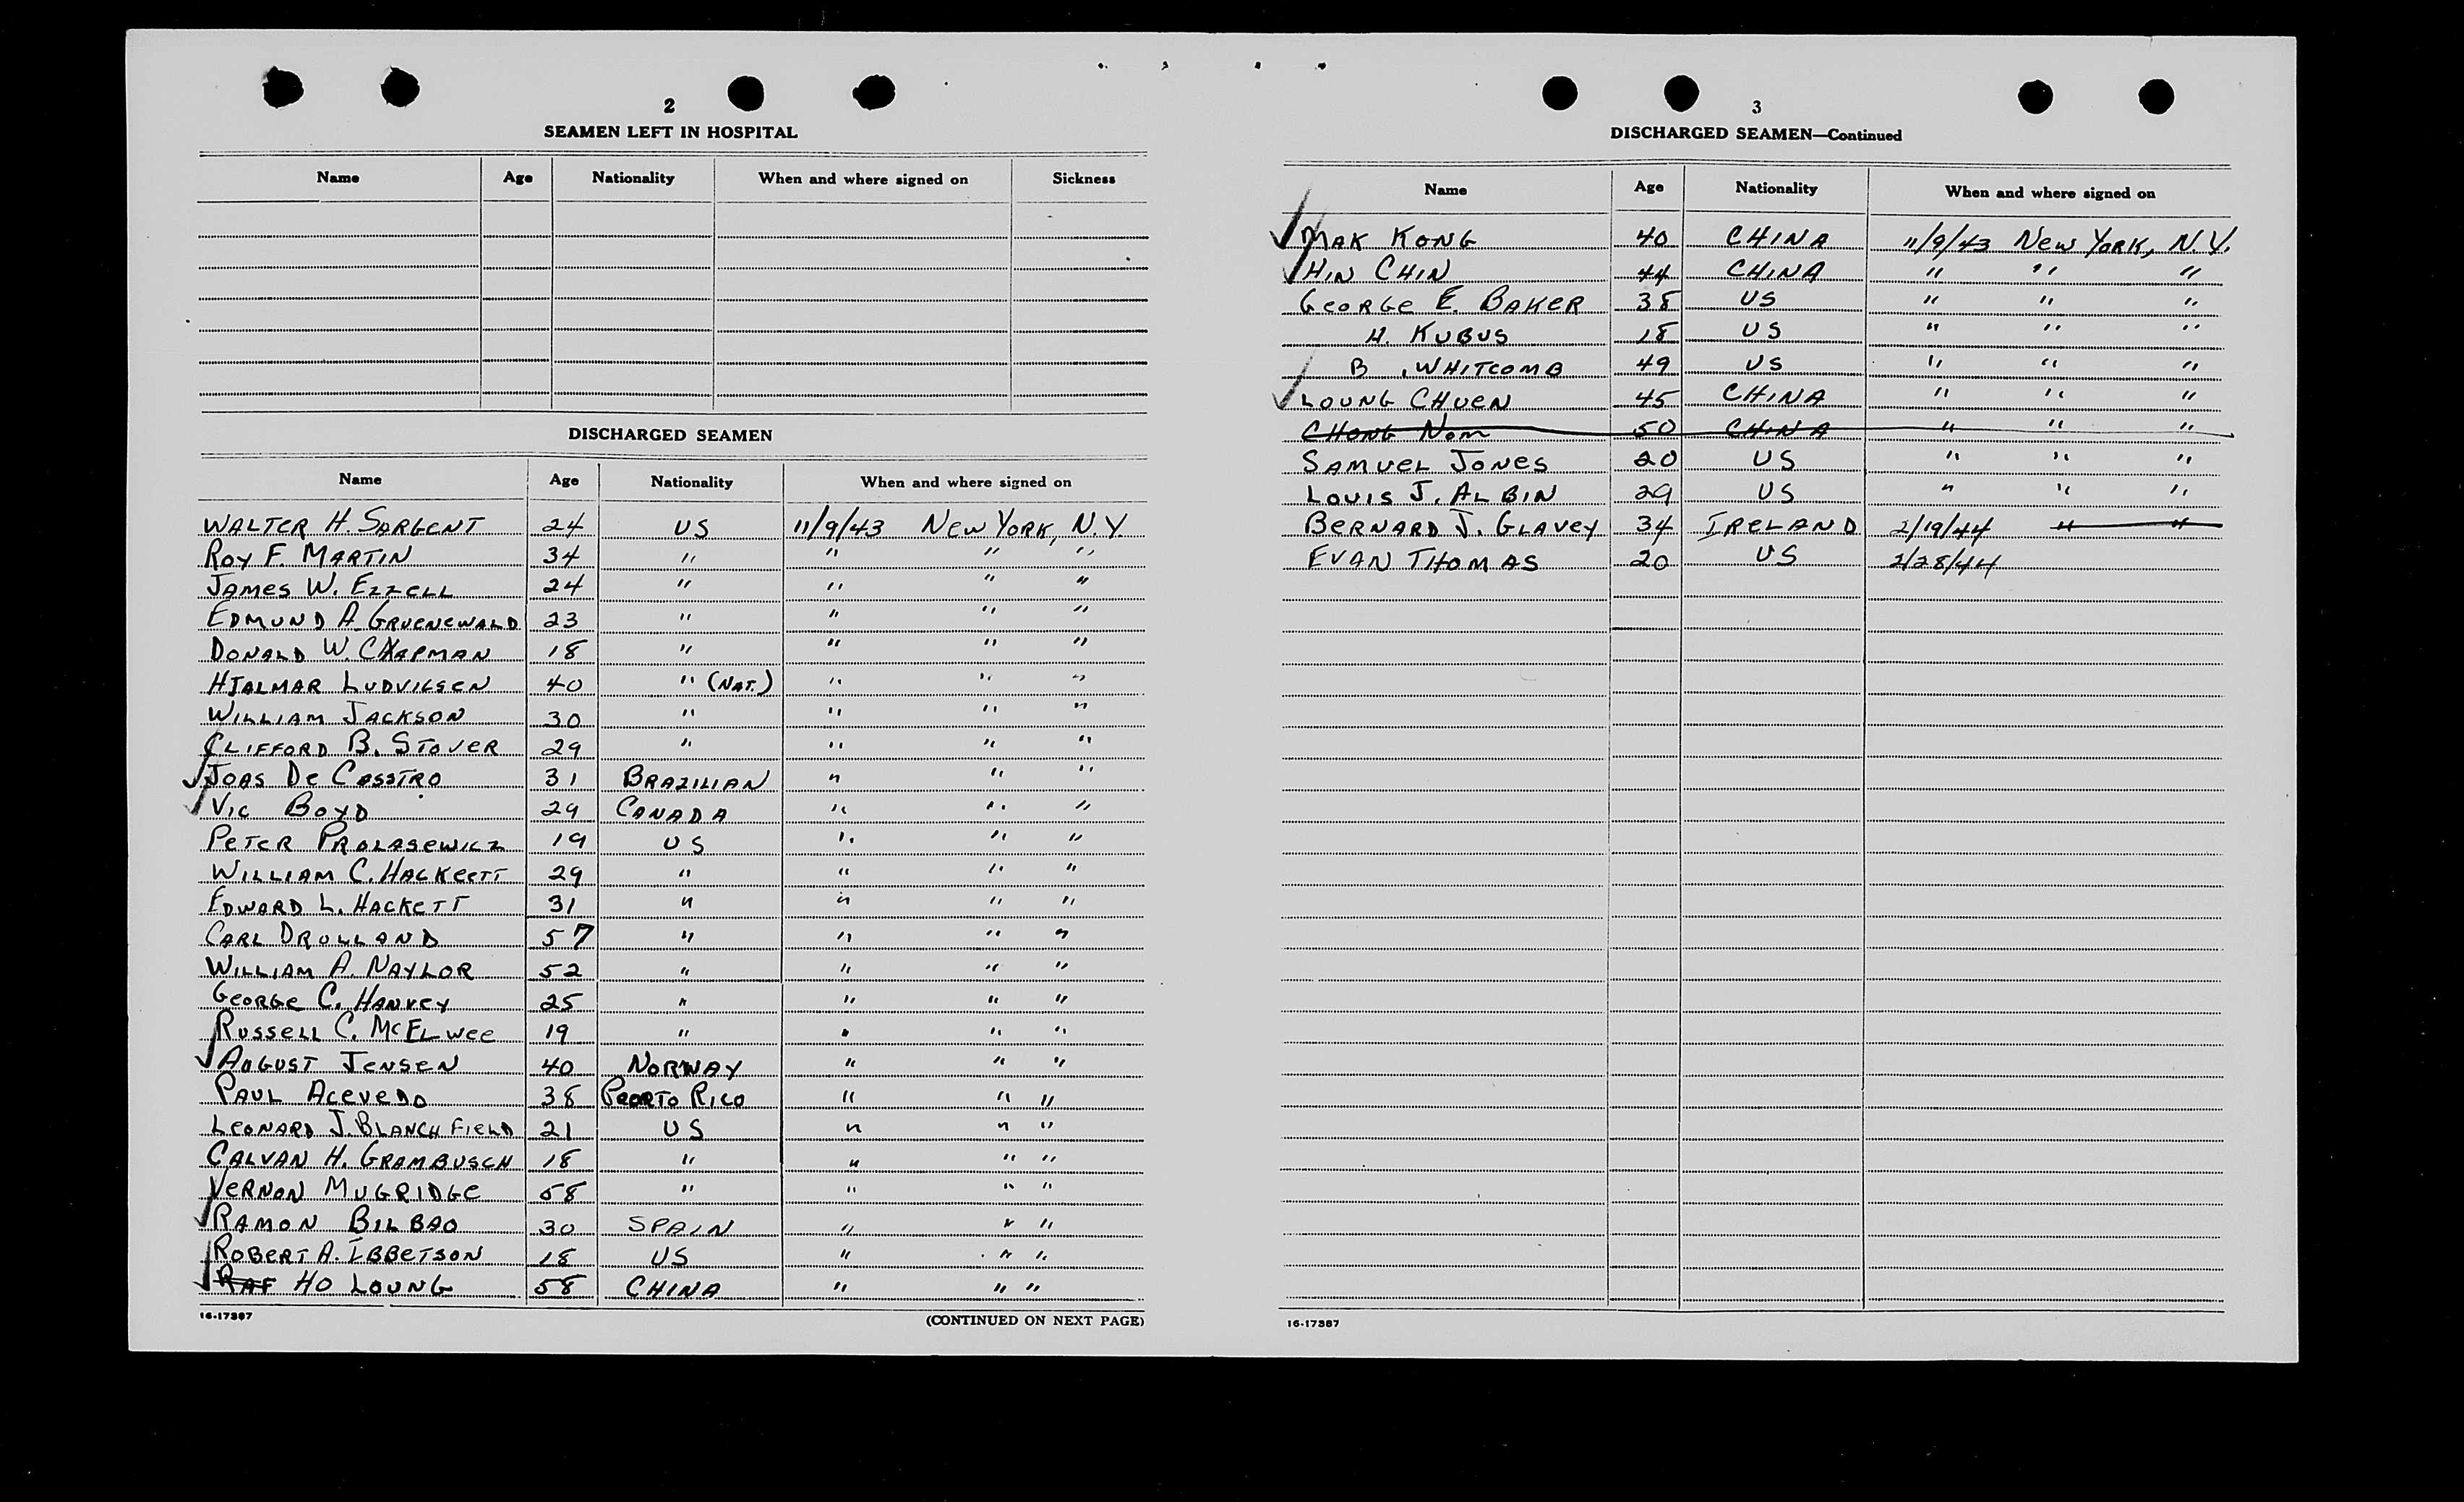 2
SEAMEN LEFT IN HOSPITAL
Name Age Nationality When and where signed on Sickness
DISCHARGED SEAMEN
Name Age Nationality When and where signed on
WALTER H. SARGENT 24 US 11/9/43 NEW YORK, N.Y.
ROY F. MARTIN 34 " " " "
JAMES W. EZZELL 24 " " " "
EDMUND A. GRUENEWALD 23 " " " "
DONALD W. CHAPMAN 18 " " " "
HJALMAR LUDVIGSEN 40 " (NAT.) " " "
WILLIAM JACKSON 30 " " " "
CLIFFORD B. STOVER 29 " " " "
JOAS DE CASSTRO 31 BRAZILIAN " " "
VIC BOYD 29 CANADA " " "
PETER PROLASEWICZ 19 US " " "
WILLIAM C. HACKEETT 29 " " " "
EDWARD L. HACKETT 31 " " " "
CARL DROLLAND 57 " " " "
WILLIAM A. NAYLOR 52 " " " "
GEORGE C. HANVEY 25 " " " "
RUSSELL C. MCELWEE 19 " " " "
AUGUST JENSEN 40 NORWAY " " "
PAUL ACEVEDO 38 PEORTO RICO " " "
LEONARD J. BLANCHFIELD 21 US " " "
CALVAN H. GRAMBUSCH 18 " " " "
VERNON MUGRIDGE 58 " " " "
RAMON BILBAO 30 SPAIN " " "
ROBERT A. IBBETSON 18 US " " "
RAF HO LOUNG 58 CHINA " " "
16-17387 (CONTINUED ON NEXT PAGE)
3
DISCHARGED SEAMEN—Continued
Name Age Nationality When and where signed on
MAK KONG 40 CHINA 11/9/43 NEW YORK, N.Y.
HIN CHIN 44 CHINA " " "
GEORGE E. BAKER 38 US " " "
H. KUBUS 18 US " " "
B. WHITCOMB 49 US " " "
LOUNG CHUEN 45 CHINA " " "
CHONG NOM 50 CHINA " " "
SAMUEL JONES 20 US " " "
LOUIS J. ALBIN 29 US " " "
BERNARD J. GLAVEY 34 IRELAND 2/19/44 " "
EVAN THOMAS 20 US 2/28/44
16-17387